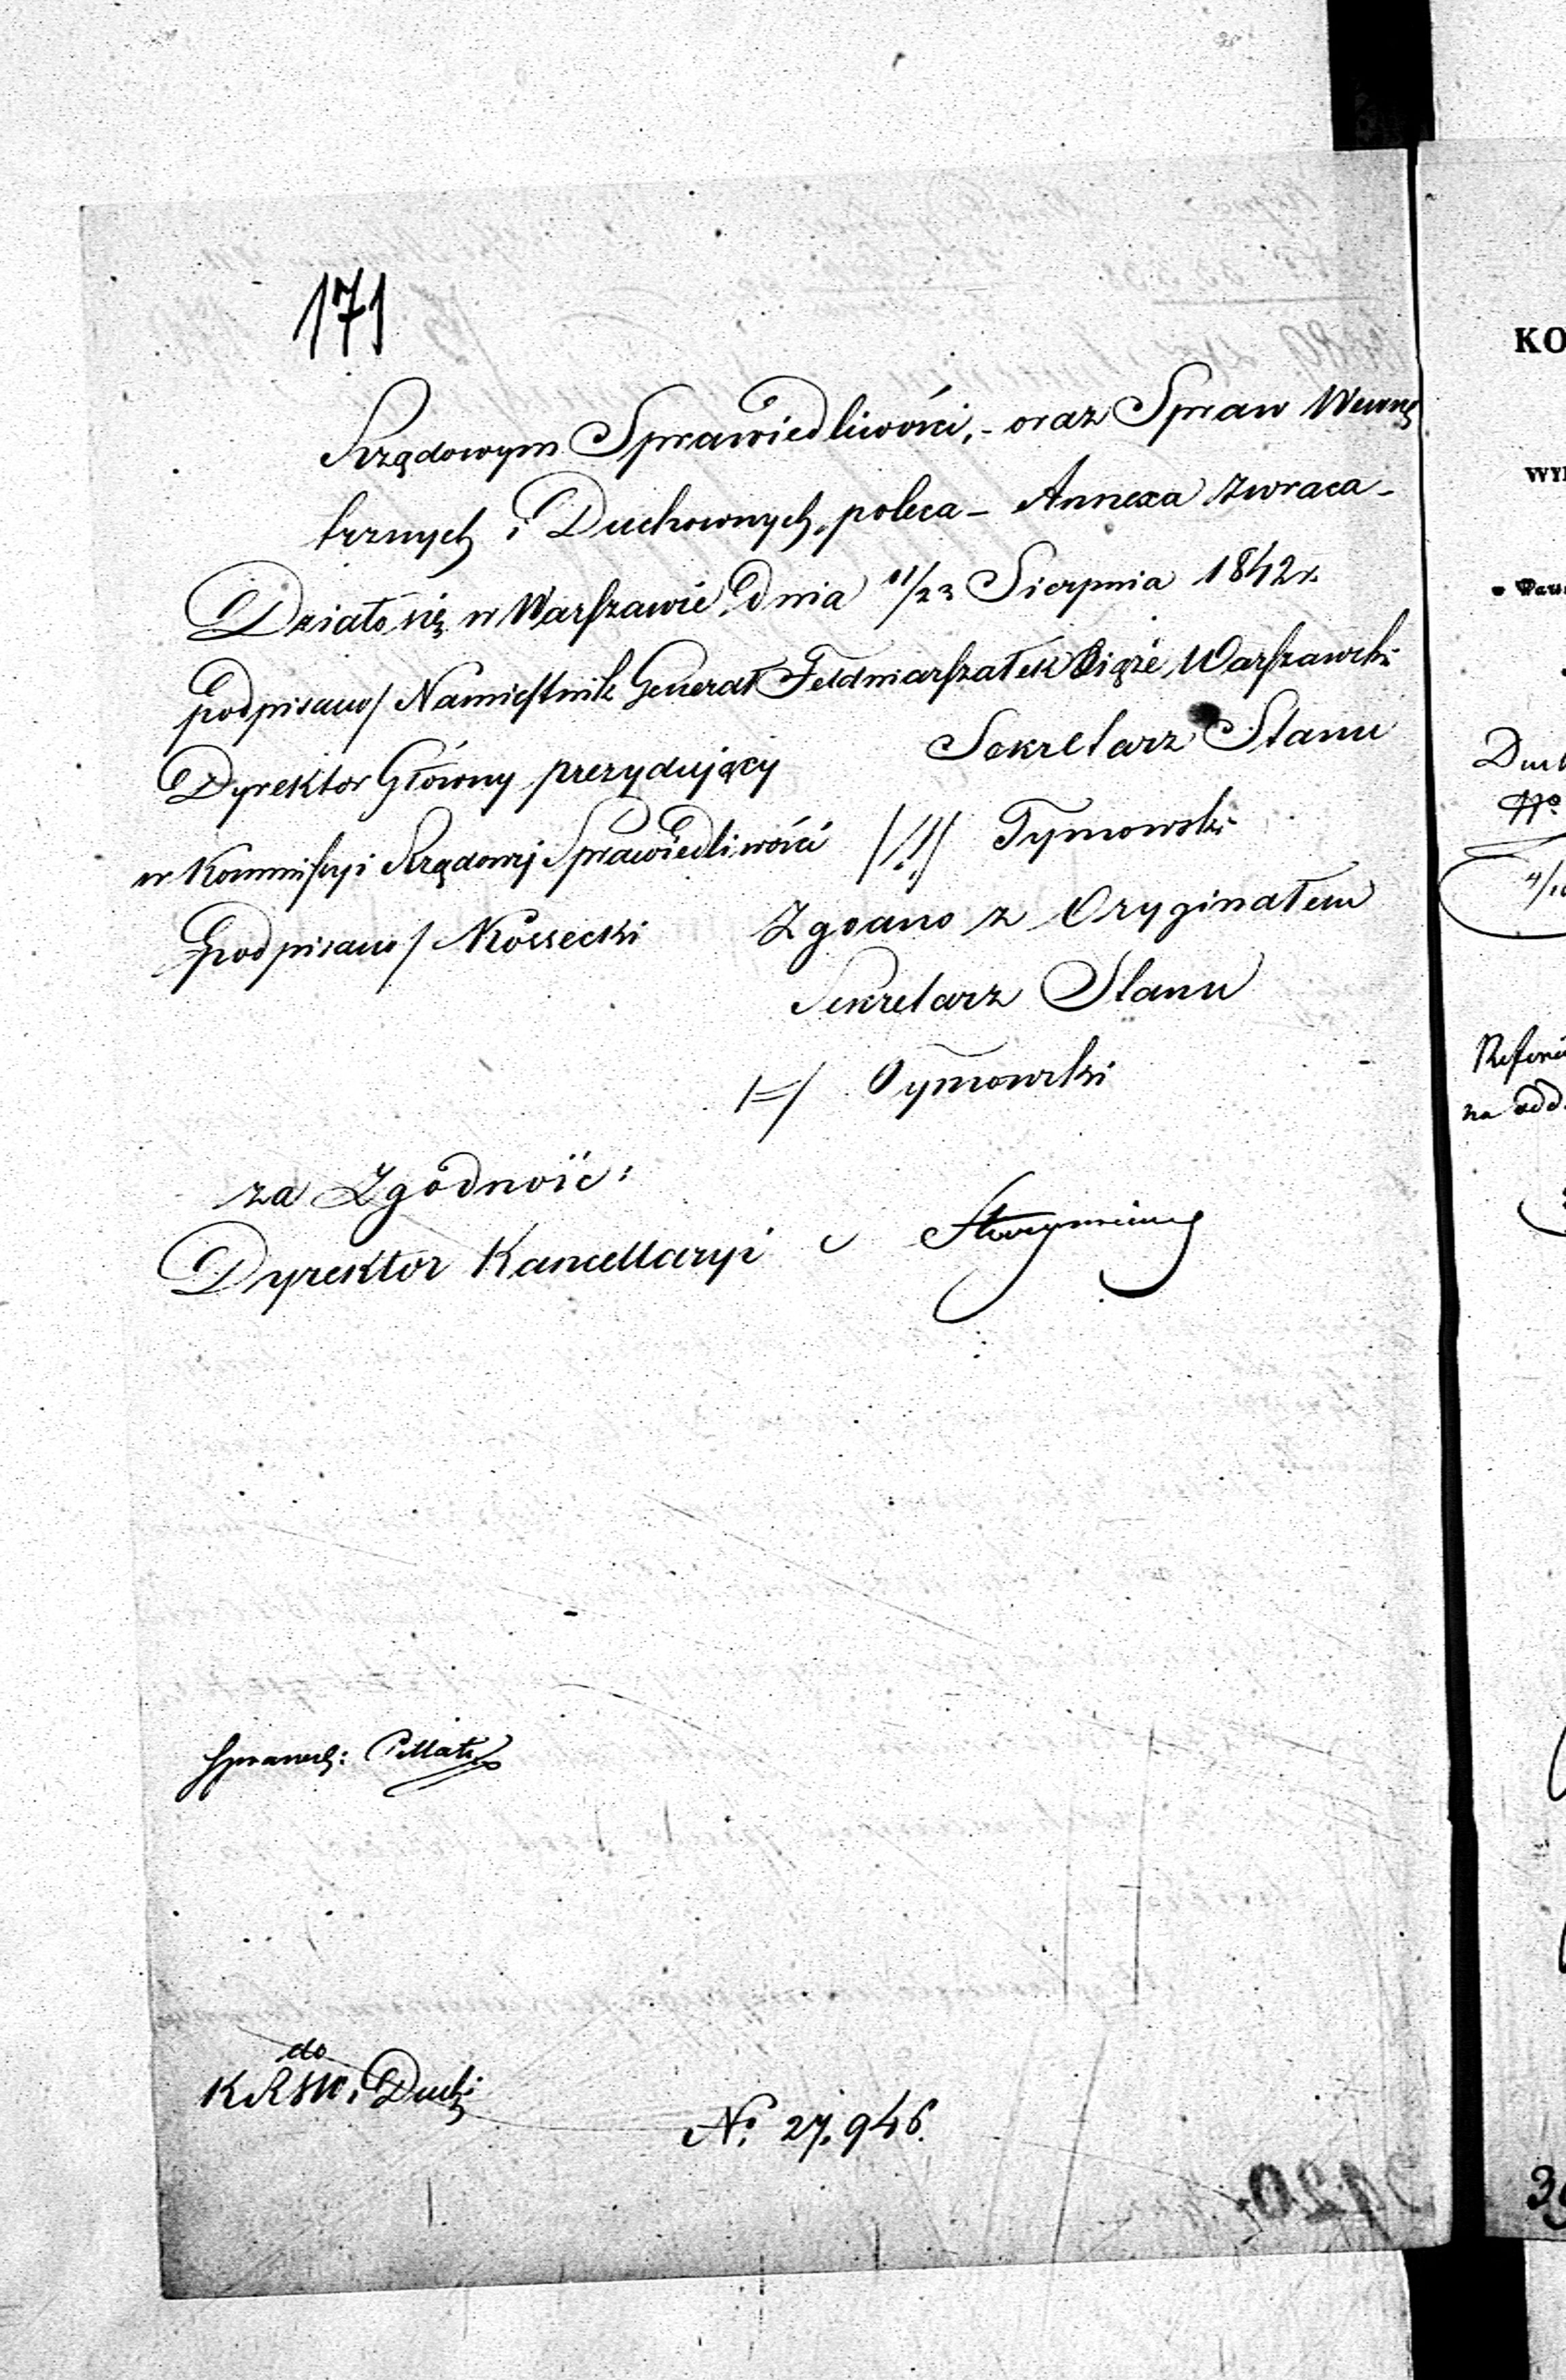 171
Rządowym Sprawiedliwości, - oraz Spraw Wewnę
trznych i Duchownych, poleca - Annexa zwraca -
Działo się w Warszawie dnia 11/23 Sierpnia 1842 r.
podpisano/ Namiestnik Generał Feldmarszałek Xiąże Warszawski
Dyrektor Główny prezydujący Sekretarz Stanu
w Kommissyi Rządowej Sprawiedliwości /!!/ Tymowski
podpisano/ Kossecki Zgodno z Oryginałem
Sekretarz Stanu
/=/ Tymowski
za Zgodność:
Dyrektor Kancellaryi
Sprawdz:
do
KRSW i Duch:
No. 27,946.
KO
WY
Duch
No.
na odd.